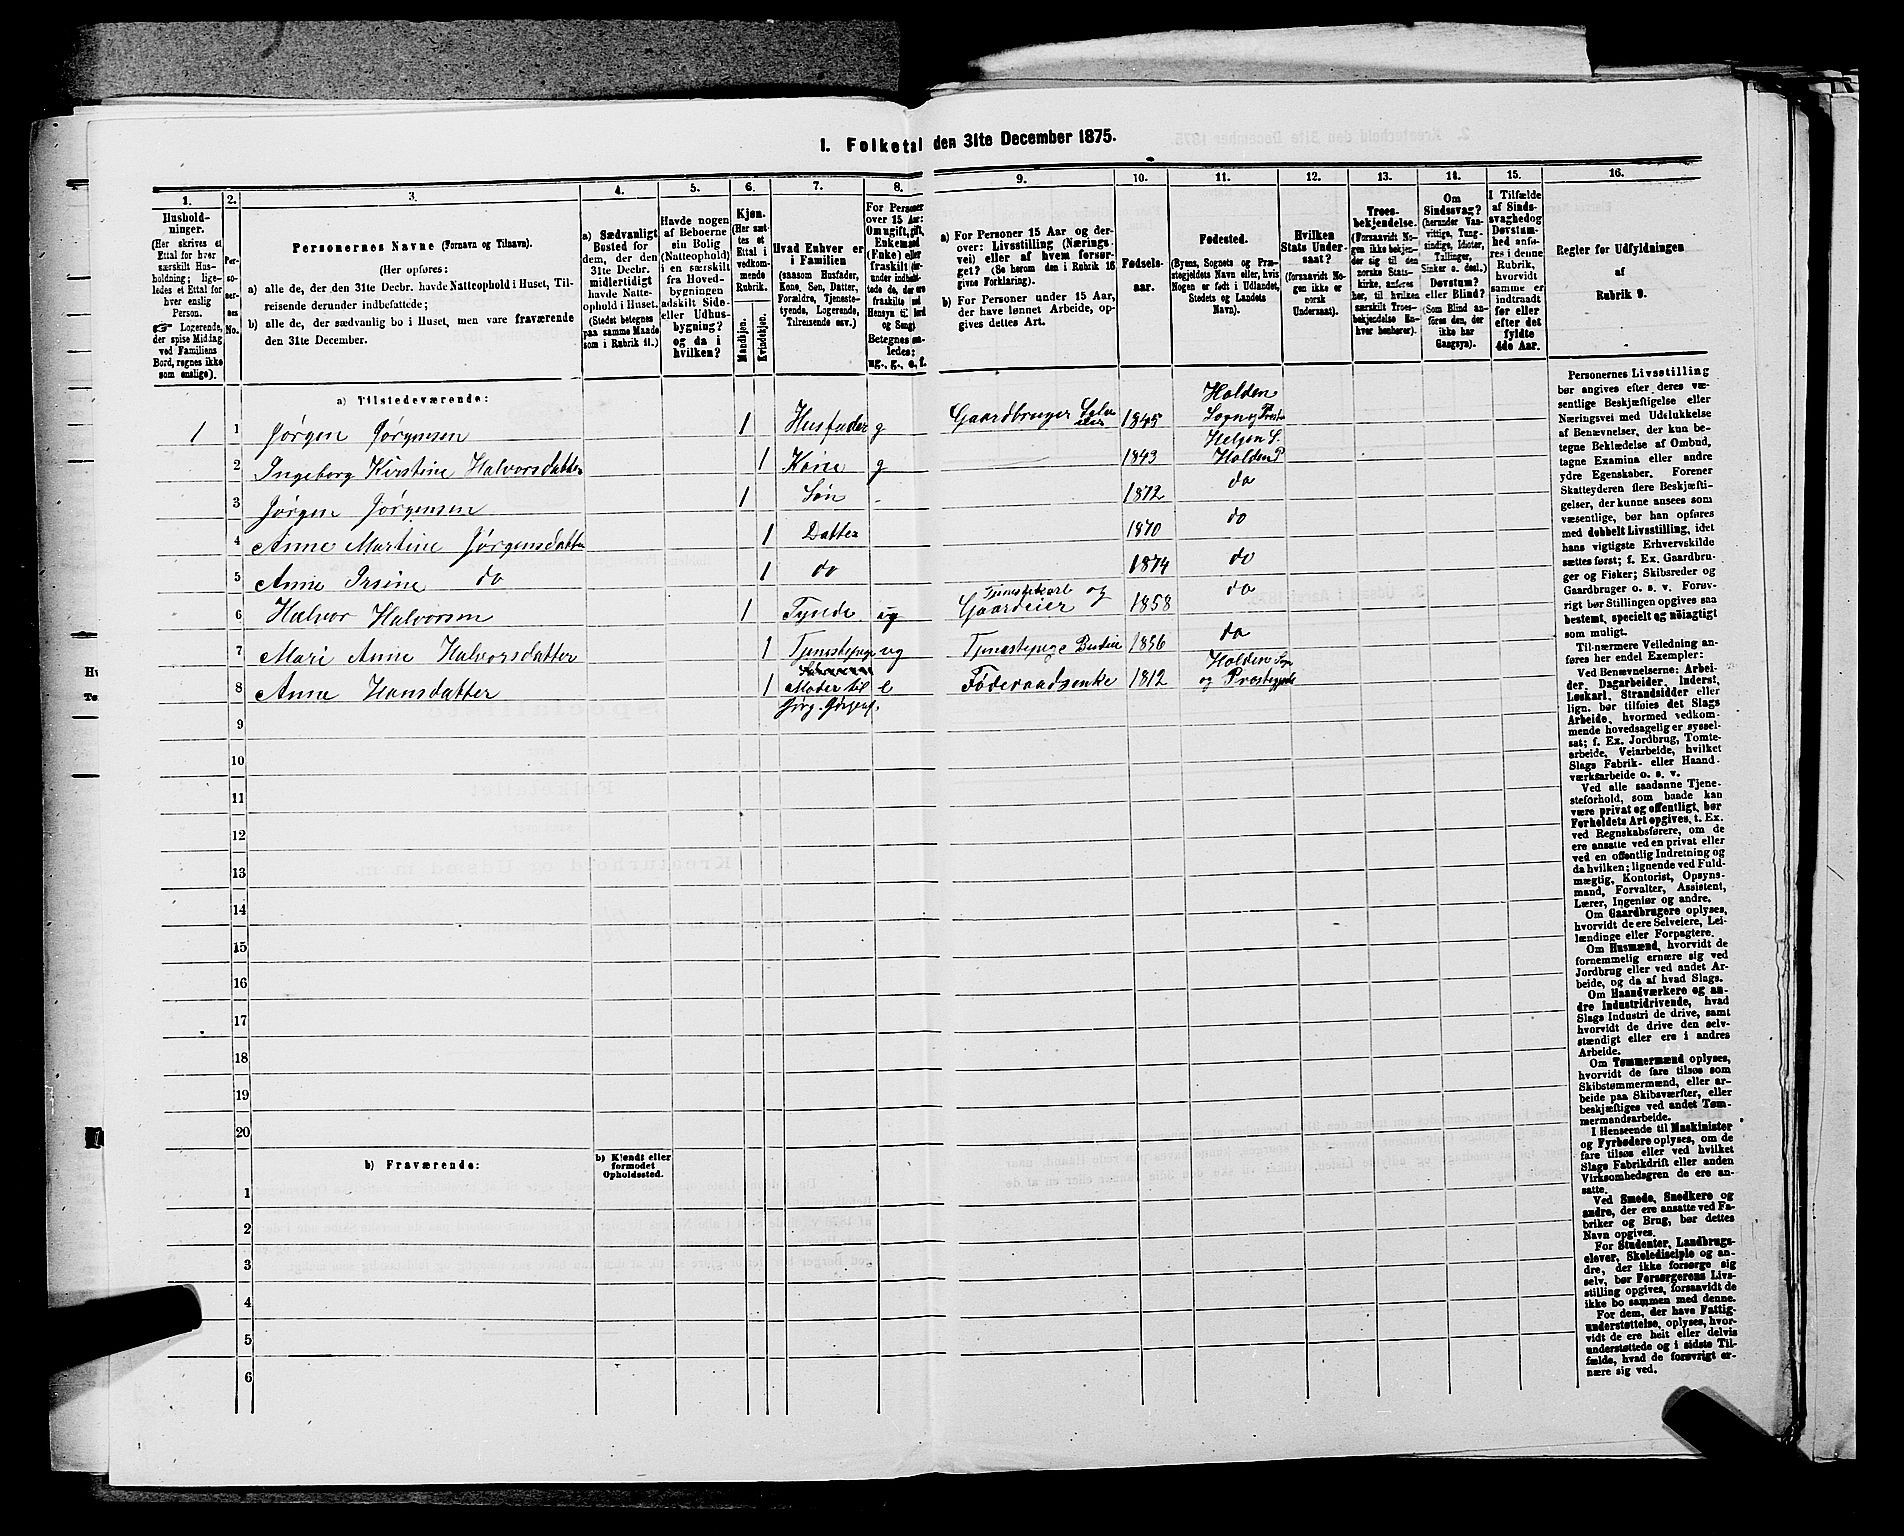 1. Folketal den 31te December 1875.
1.
2.
3.
4.
5.
6.
7.
8.
9.
10.
11.
12.
13.
14.
15.
16.
Hushold-
ninger.
(Her skrives et
Ettal for hver
særskilt Hus-
holdning; lige-
ledes et Ettal for
hver enslig
Person.
☞ Logerende,
der spise Middag
ved Familiens
Bord, regnes ikke
som enslige).
Per-
so-
ner-
nes
No.
Personernes Navne (Fornavn og Tilnavn).
(Her opføres:
a) alle de, der den 31te Decbr. havde Natteophold i Huset, Til-
reisende derunder indbefattede;
b) alle de, der sædvanlig bo i Huset, men vare fraværende
den 31te December.
a) Sædvanligt
Bosted for
dem, der den
31te Decbr.
midlertidigt
havde Natte-
ophold i Huset.
(Stedet betegnes
paa samme Maade
som i Rubrik 11.)
Havde nogen
af Beboerne
sin Bolig
(Natteophold)
i en særskilt
fra Hoved-
bygningen
adskilt Side-
eller Udhus-
bygning?
og da i
hvilken?
Kjøn.
(Her sæt-
tes et
Ettal i
vedkom-
mende
Rubrik.
Mandkjøn.
Kvindekjøn.
Hvad Enhver er
i Familien
(saasom Husfader,
Kone, Søn, Datter,
Forældre, Tjeneste-
tyende, Logerende,
Tilreisende osv.)
For Personer
over 15 Aar:
Om ugift, gift,
Enkemand
(Enke) eller
fraskilt
Betegnes saa-
ledes:
ug., g., e., f.
a) For Personer 15 Aar og der-
over: Livsstilling (Nærings-
vei) eller af hvem forsør-
get? (Se herom den i Rubrik 16
givne Forklaring).
b) For Personer under 15 Aar,
der have lønnet Arbeide, op-
gives dettes Art.
Fødsels-
aar.
Fødested.
(Byens, Sognets og Præ-
stegjeldets Navn eller, hvis
Nogen er født i Udlandet,
Stedets og Landets
Navn).
Hvilken
Stats Under-
saat?
(forsaavidt No-
gen ikke er
norsk
Undersaat).
Troes-
bekjendelse.
(Forsaavidt No-
gen ikke bekjen-
der sig til den
norske Stats-
kirke, anføres
her, til hvilken
særskilt Troes-
bekjendelse En-
hver henhører).
Om
Sindssvag?
(herunder Van-
vittige, Tung-
sindige, Idioter,
Tullinger,
Sinker o. desl.)
Døvstum?
eller Blind?
(Som Blind an-
føres den, der
ikke har
Gangsyn).
I Tilfælde
af Sinds-
svaghed og
Døvstum-
hed anfø-
res i denne
Rubrik,
hvorvidt
samme er
indtraadt
før eller
efter det
fyldte
4de Aar.
Regler for Udfyldningen
af
Rubrik 9.
a) Tilstedeværende:
1 1 Jørgen Jørgensen 1 Husfader g Gaardbruger Selveier 1845 Holden
Sogn og Præst
2 Ingeborg Kirstine Halvorsdatter 1 Kone g 1843 Helgen S.
Holden P
3 Jørgen Jørgensen 1 Søn - 1872 do
4 Anne Martine Jørgensdatter 1 Datter 1870 do
5 Anne do 1 do 1874 do
6 Halvor Halvorsen 1 Tyende ug Tjenestekarl og
Gaardeier 1858 do
7 Mari Anne Halvorsdatter 1 Tjenestepige ug Tjenestepige Budeie 1856 do
8 Anne Hansdatter 1 Moder til
Jørg. Jørgens. e Føderaadsenke 1812 Holden Sogn
og Præstegjeld
9
10
11
12
13
14
15
16
17
18
19
20
b) Fraværende:
b) Kjendt eller
formodet
Opholdssted.
1
2
3
4
5
6
Personernes Livsstilling
bør angives efter deres væ-
sentlige Beskjæftigelse eller
Næringsvei med Udelukkelse
af Benævnelser, der kun be-
tegne Beklædelse af Ombud,
tagne Examina eller andre
ydre Egenskaber. Forener
Skatteyderen flere Beskjæfti-
gelser, der kunne ansees som
væsentlige, bør han opføres
med dobbelt Livsstilling, idet
hans vigtigste Erhvervskilde
sættes først; f. Ex. Gaardbru-
ger og Fisker; Skibsreder og
Gaardbruger o. s. v. Forøv-
rigt bør Stillingen opgives saa
bestemt, specielt og nøiagtigt
som muligt.
Til nærmere Veiledning an-
føres her endel Exempler:
Ved Benævnelserne: Arbei-
der, Dagarbeider, Inderst,
Løskarl, Strandsidder eller
lign. bør tilføies det Slags
Arbeide, hvormed vedkom-
mende hovedsagelig er syssel-
sat; f. Ex. Jordbrug, Tomte-
arbeide, Veiarbeide, hvilket
Slags Fabrik- eller Haand-
værksarbeide o. s. v.
Ved alle saadanne Tjene-
steforhold, som baade kan
være privat og offentligt, bør
Forholdets Art opgives, t. Ex.
ved Regnskabsførere, om de
ere ansatte ved en privat eller
ved en offentlig Indretning og
da hvilken; lignende ved Fuld-
mægtig, Kontorist, Opsyns-
mand, Forvalter, Assistent,
Lærer, Ingeniør og andre.
Om Gaardbrugere oplyses,
hvorvidt de ere Selveiere, Lei-
lændinge eller Forpagtere.
Om Husmænd, hvorvidt de
fornemmelig ernære sig ved
Jordbrug eller ved andet Ar-
beide, og da af hvad Slags.
Om Haandværkere og an-
dre Industridrivende, hvad
Slags Industri de drive, samt
hvorvidt de drive den selv-
stændigt eller ere i andres
Arbeide.
Om Tømmermænd oplyses,
hvorvidt de fare tilsøs som
Skibstømmermænd, eller ar-
beide paa Skibsværfter, eller
beskjæftiges ved andet Tøm-
mermandsarbeide.
I Henseende til Maskinister
og Fyrbødere oplyses, om de
fare tilsøs eller ved hvilket
Slags Fabrikdrift eller anden
Virksomhedsgren de ere an-
satte.
Ved Smede, Snedkere og
andre, der ere ansatte ved Fa-
briker og Brug, bør dettes
Navn opgives.
For Studenter, Landbrugs-
elever, Skoledisciple og an-
dre, der ikke forsørge sig
selv, bør Forsørgerens Livs-
stilling opgives, forsaavidt de
ikke bo sammen med denne.
For dem, der have Fattig-
understøttelse, oplyses, hvor-
vidt de ere helt eller delvis
understøttede og i sidste Til-
fælde, hvad de forøvrigt er-
nære sig ved.